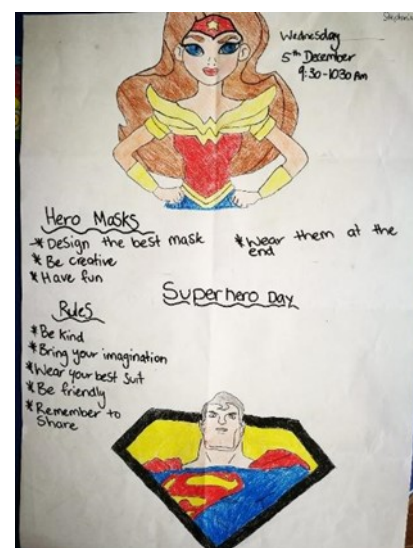 Wednesday
5th December
9:30-1030 Am
Hero Masks
* Design the best mask
* Be creative
* Have fun
* Wear them at the
end
Superhero Day
Rules
* Be Kind
* Bring your imagination
* Wear your best suit
* Be friendly
* Remember to
Share